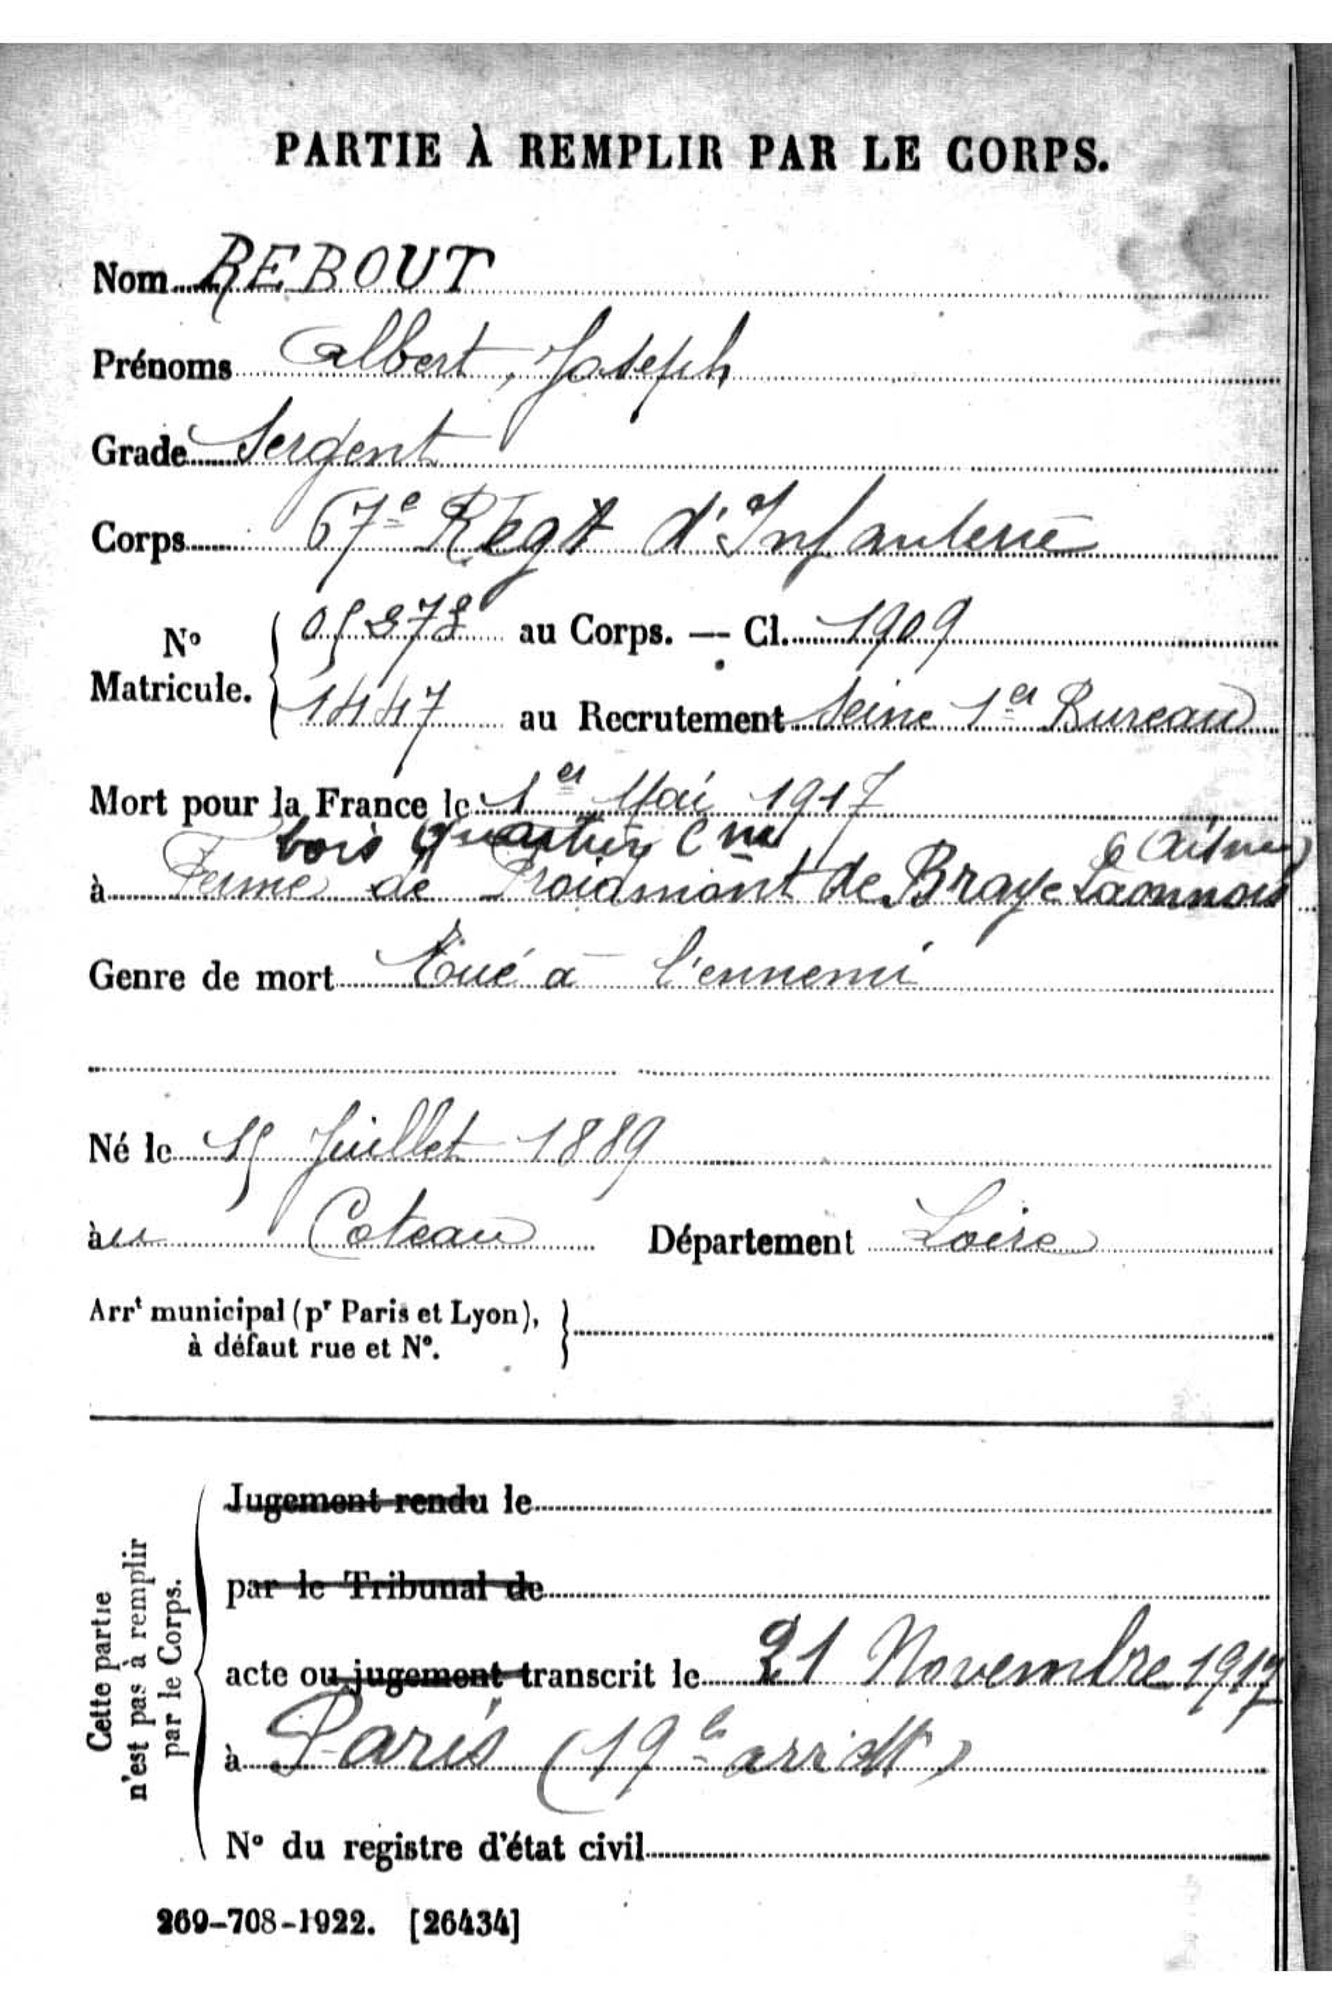 PARTIE À REMPLIR PAR LE CORPS.
Nom REBOUT
Prénoms Albert, Joseph
Grade Sergent
Corps 67e Régt d'Infanterie
No Matricule. { 05373 au Corps. — Cl. 1909
1447 au Recrutement Seine 1er Bureau
Mort pour la France le 1er Mai 1917
bois quartier Cne (Aisne)
à Ferme de Froidmont de Braye Laonnois
Genre de mort Tué à l'ennemi
Né le 15 Juillet 1889
àu Coteau Département Loire
Arrt municipal (pr Paris et Lyon),
à défaut rue et No.
Cette partie
n'est pas à remplir
par le Corps.
Jugement rendu le
par le Tribunal de
acte ou jugement transcrit le 21 Novembre 1917
à Paris (19e arrdt)
No du registre d'état civil
269-708-1922. [26434]